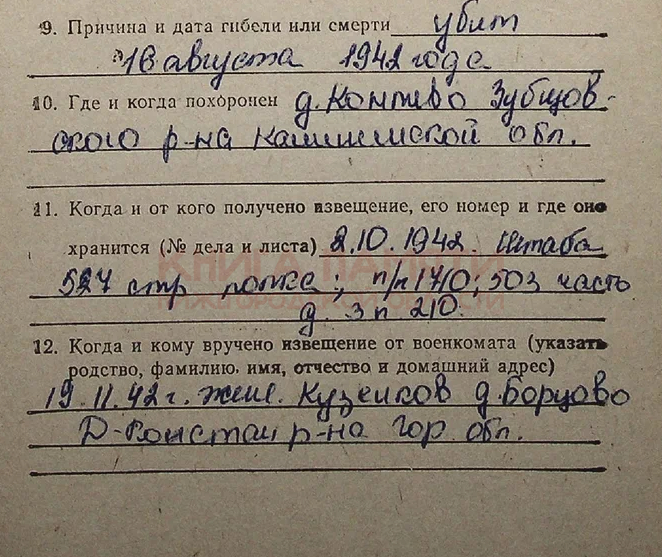 9. Причина и дата гибели или смерти убит
16 августа 1942 года
10. Где и когда похоронен д. Контево Зубцов-
ского р-на Калининской обл.
11. Когда и от кого получено извещение, его номер и где оно
хранится (№ дела и листа) 2.10.1942. Штаба
КНИГА ПАМЯТИ
527 стр полка; п/п 1710; 503 часть
д. 3 п 210.
12. Когда и кому вручено извещение от военкомата (указать
родство, фамилию, имя, отчество и домашний адрес)
19.11.42 г. жене. д. Борцово
Д-Констан р-на Гор обл.